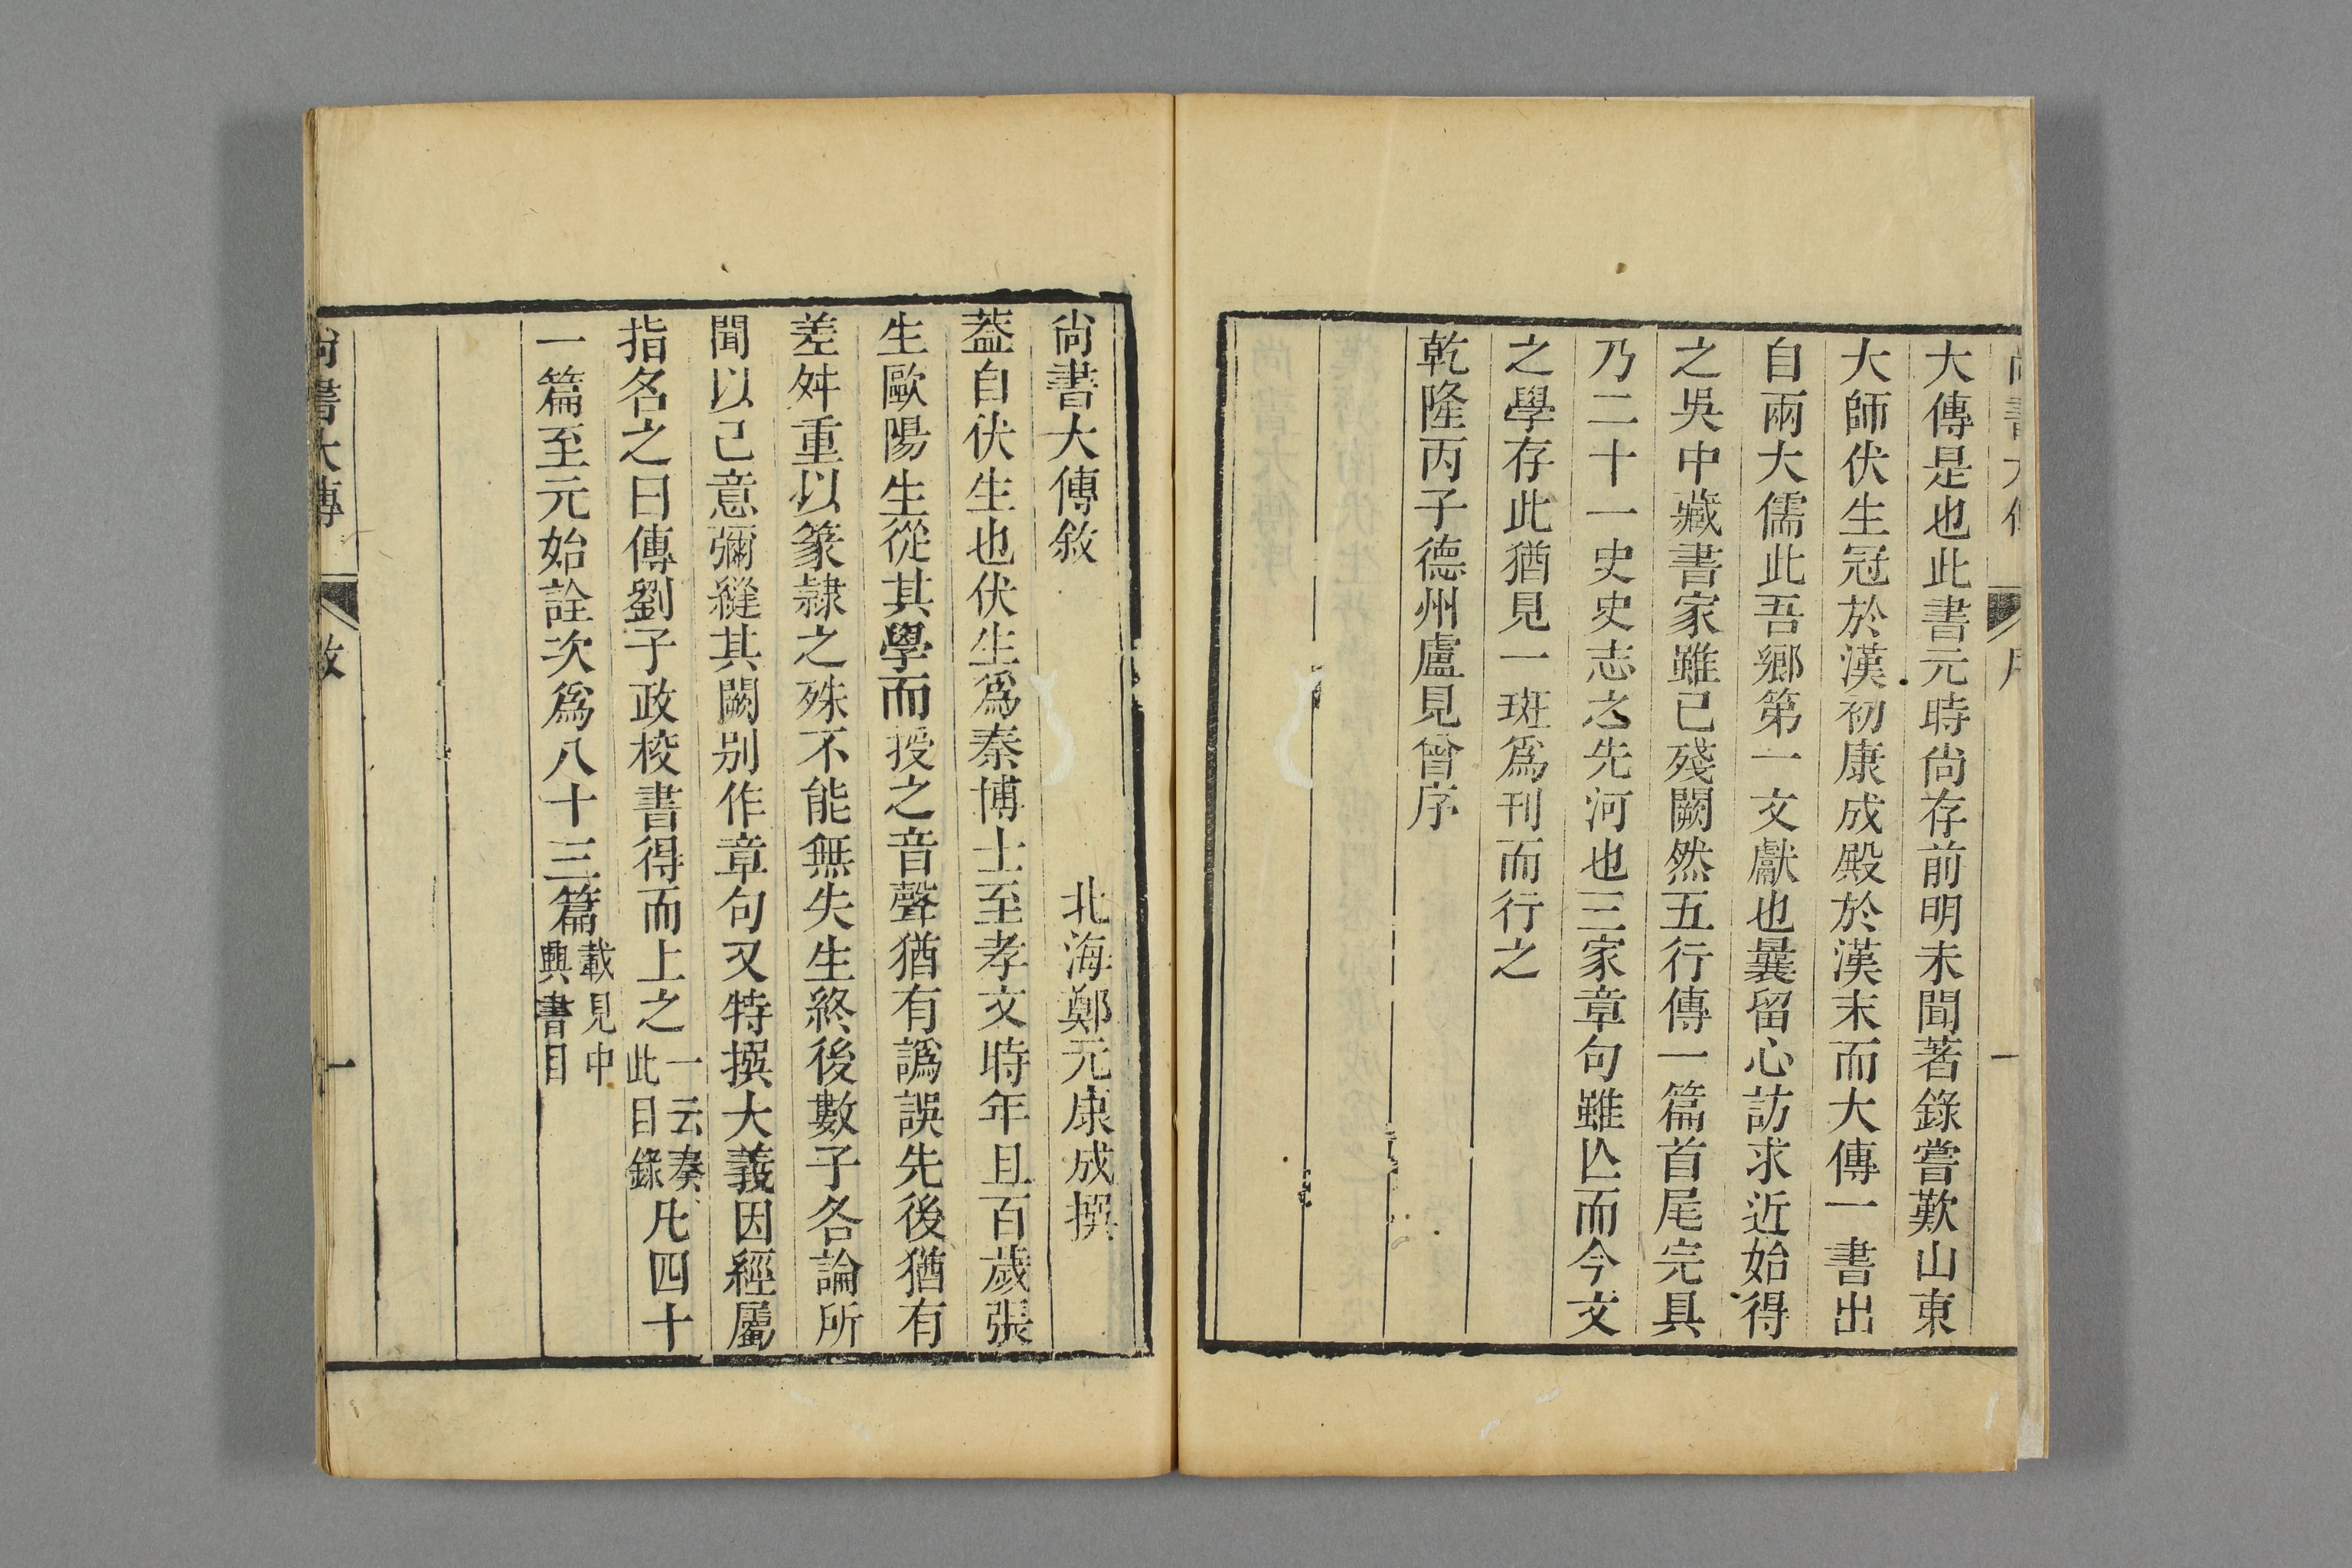 大傳是也此書元時尙存前明未聞著錄嘗歎山東
大師伏生冠於漢初康成殿於漢末而大傳一書出
自兩大儒此吾鄉第一文獻也曩留心訪求近始得
之吳中藏書家雖已殘闕然五行傳一篇首尾完具
乃二十一史史志之先河也三家章句雖亾而今文
之學存此猶見一斑爲刊而行之
乾隆丙子德州盧見曾序
尙書大傳敘
北海鄭元康成撰
葢自伏生也伏生爲秦博士至孝文時年且百歲張
生歐陽生從其學而授之音聲猶有譌誤先後猶有
差舛重以篆隷之殊不能無失生終後數子各論所
聞以己意彌縫其闕别作章句又特撰大義因經屬
指名之曰傳劉子政校書得而上之一云奏此目錄凡四十
一篇至元始詮次爲八十三篇載見中興書目
尙書大傳
敘
一